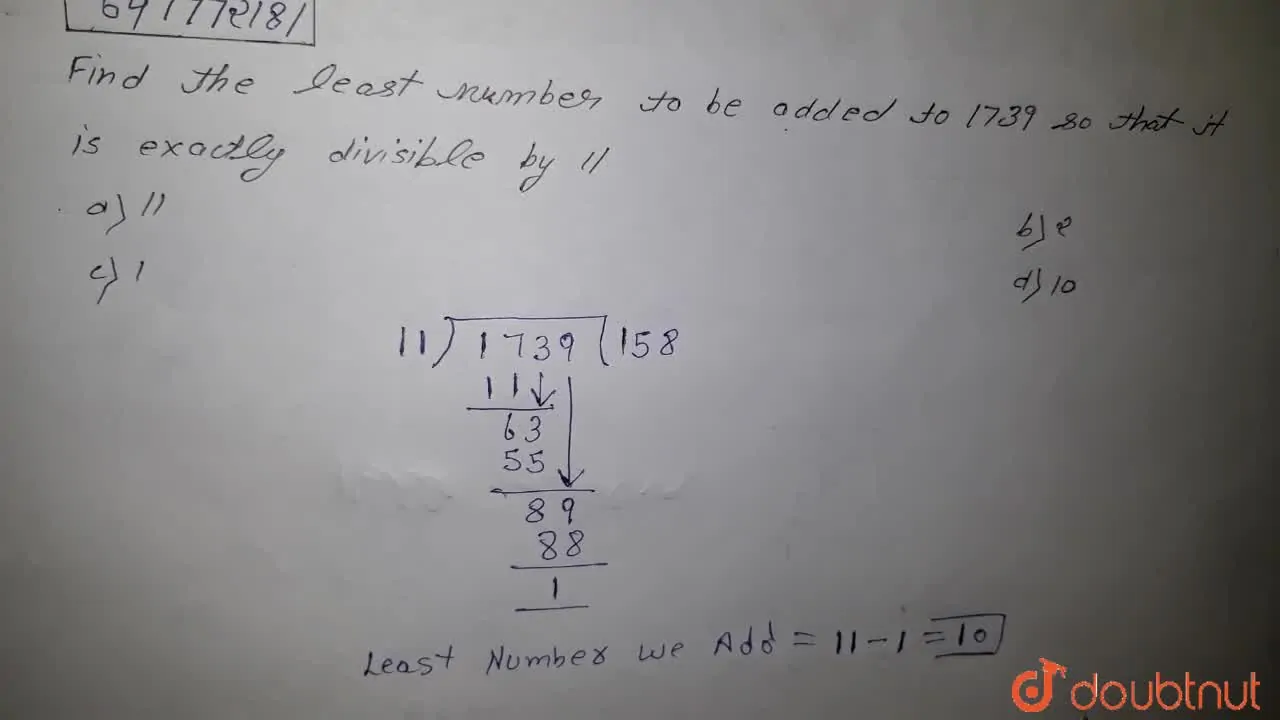 641772181
Find the least number to be added to 1739 so that it
is exactly divisible by 11
a) 11
b) 2
c) 1
d) 10
11) 1739 (158
11
63
55
89
88
1
Least Number we Add = 11-1 = 10
doubtnut